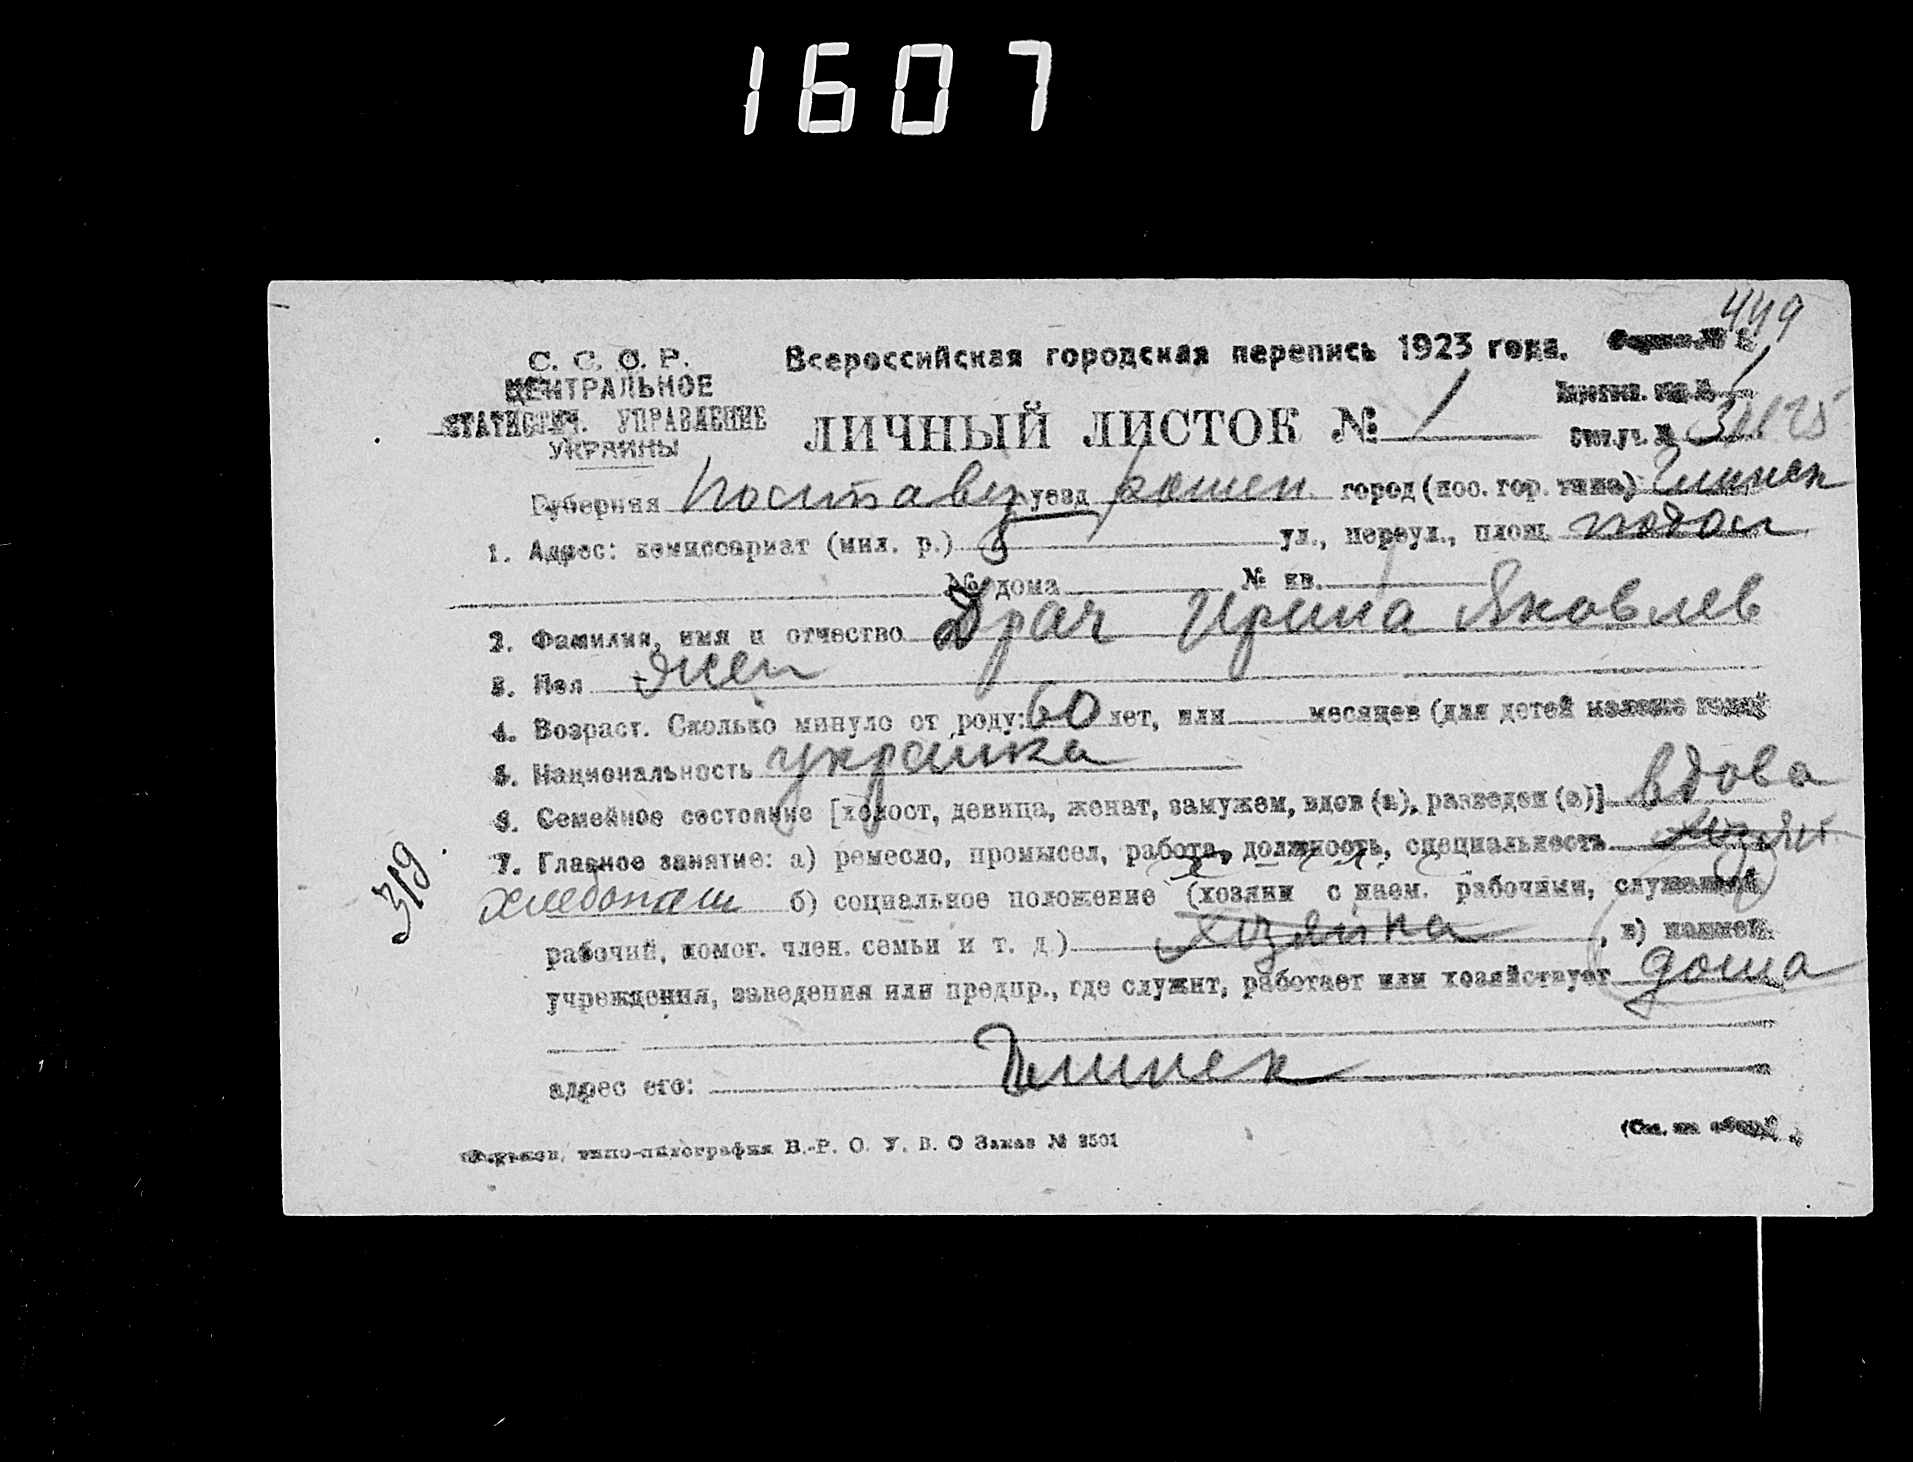 1607
449
С. С. С. Р.
ЦЕНТРАЛЬНОЕ
СТАТИСТИЧ. УПРАВЛЕНИЕ
УКРАИНЫ
Всероссийская городская перепись 1923 года.
ЛИЧНЫЙ ЛИСТОК № 1
Губерния Полтавск уезд город (пос. гор. типа) Глинск
1. Адрес: комиссариат (мил. р.) 5 ул., переул., площ.
№ дома № кв.
2. Фамилия, имя и отчество Драч Ирина Яковлев
3. Пол жен
4. Возраст. Сколько минуло от роду: 60 лет, или месяцев (для детей
5. Национальность украинка
6. Семейное состояние [холост, девица, женат, замужем, вдов (а), разведен (а)] вдова
7. Главное занятие: а) ремесло, промысел, работа, должность, специальность
хлебопаш б) социальное положение (хозяин с наем. рабочими, служащий,
319
рабочий, помог. член. семьи и т. д.) хозяйка, в) наимен.
учреждения, заведения или предпр., где служит, работает или хозяйствует дома
адрес его: Глинск
Харьков, типо-литография В.-Р. О. У. В. О Заказ № 3501
(См. на обор.)